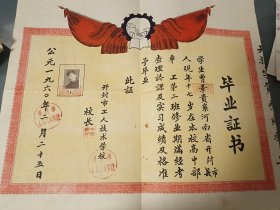 毕业证书
学生曹□贵系河南省开封县市
人现年十七岁在本校高中部
□工第二班修业期满经考
查理论课及实习成绩及格准
予毕业
此证
开封市工人技术学校
校长
公元一九六〇年二月二十五日